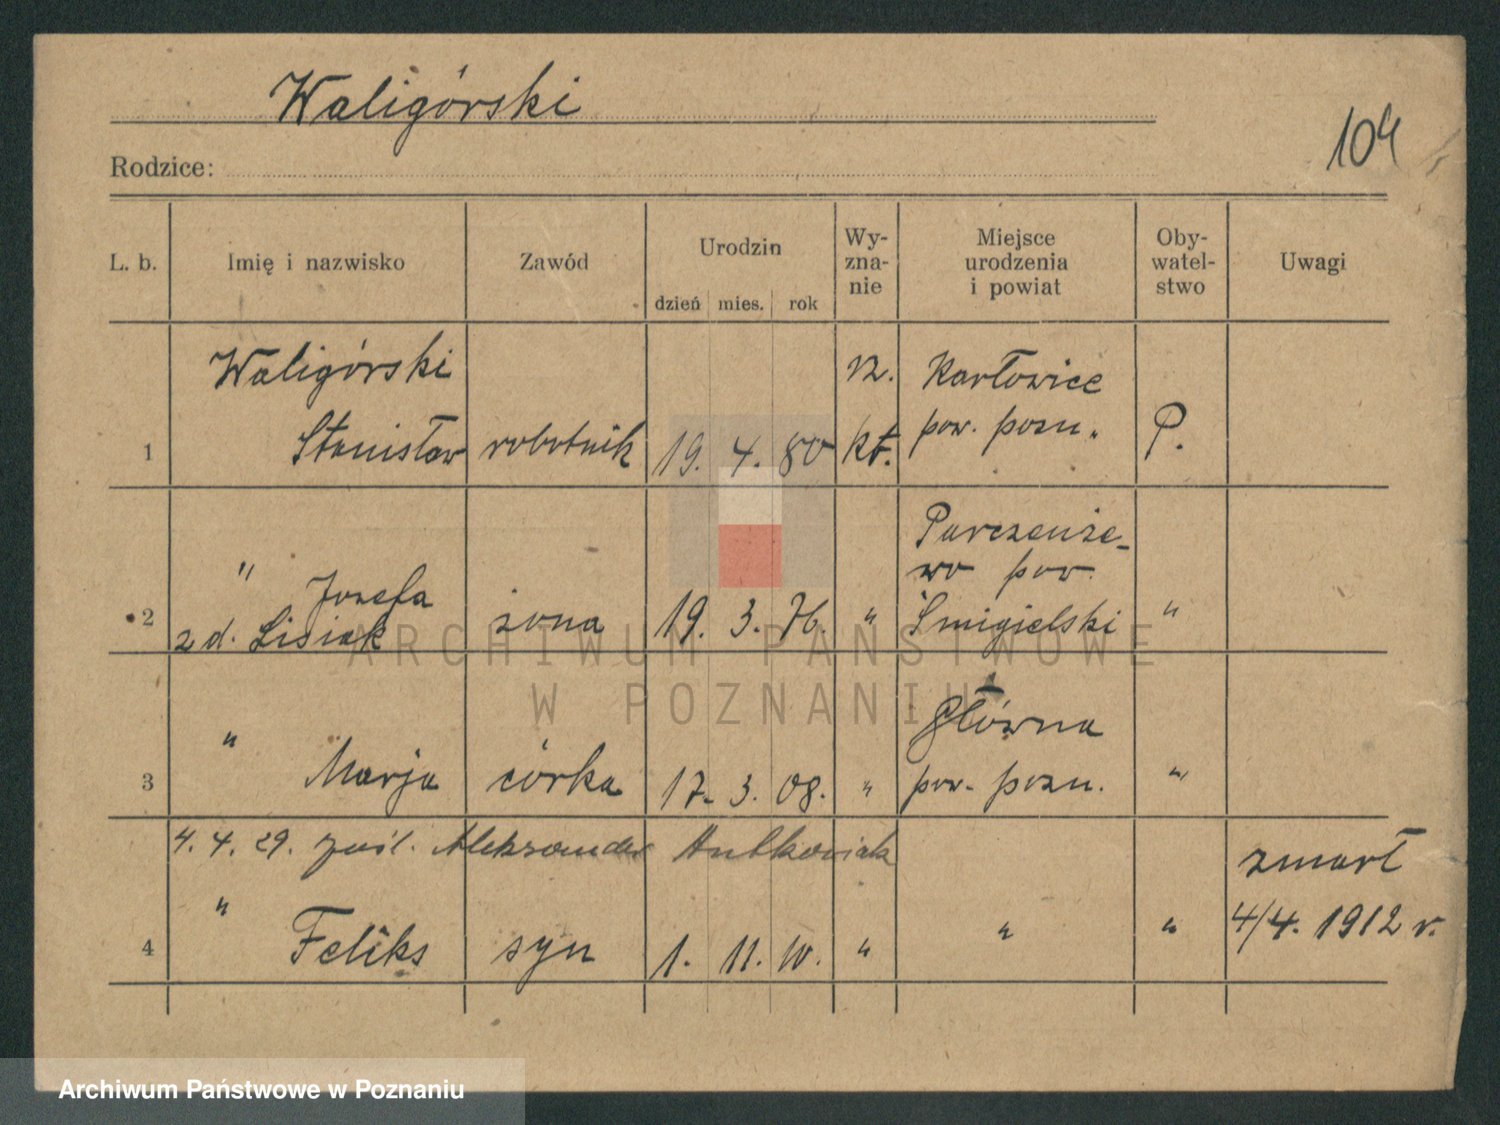 Waligórski
104
Rodzice:
L. b. Imię i nazwisko Zawód Urodzin dzień mies. rok Wy-zna-nie Miejsce urodzenia i powiat Oby-watel-stwo Uwagi
Waligórski rz. Karłowice
1 Stanisław robotnik 19. 4. 80 kt. pow. pozn. P.
Parczenże-
wo pow.
" Józefa
2 z d. Lisiak żona 19. 3. 76. " Śmigielski "
Główna
3 " Marja córka 17. 3. 08. " pow. pozn. "
4. 4. 29. zaśl. Aleksander Antkowiak
zmarł
4 " Feliks syn 1. 11. 10. " " " 4/4. 1912 r.
ARCHIWUM PAŃSTWOWE
W POZNANIU
Archiwum Państwowe w Poznaniu